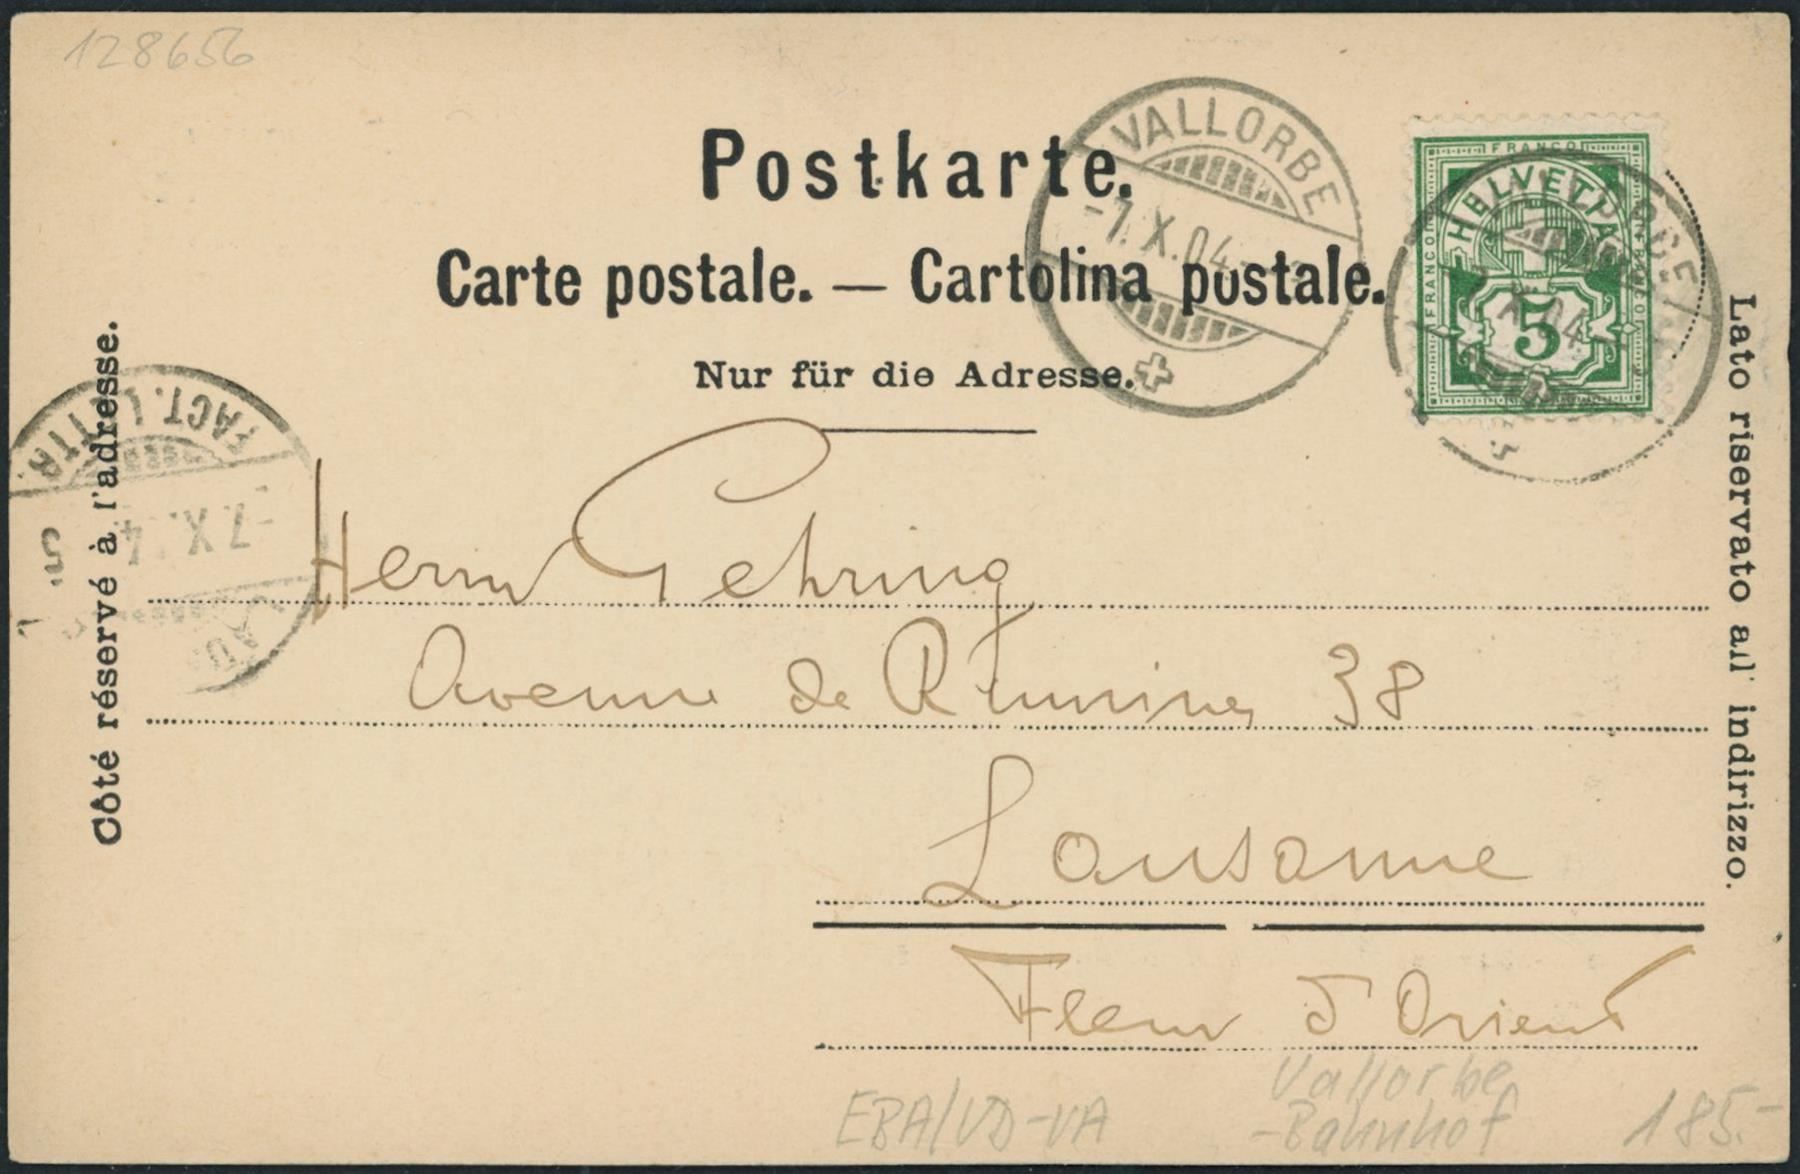 128656
Postkarte.
Carte postale. — Cartolina postale.
Nur für die Adresse.
VALLORBE
-7.X.04.-
FRANCO
HELVETIA
FRANCO
5
Côté réservé à l'adresse.
FACT. LETTR.
-7.X. 4
Lato riservato all' indirizzo.
Herrn Gehring
Avenue de Rumine 38
Lausanne
Fleur d'Orient
Vallorbe
EBA/VD-VA
-Bahnhof
185.-